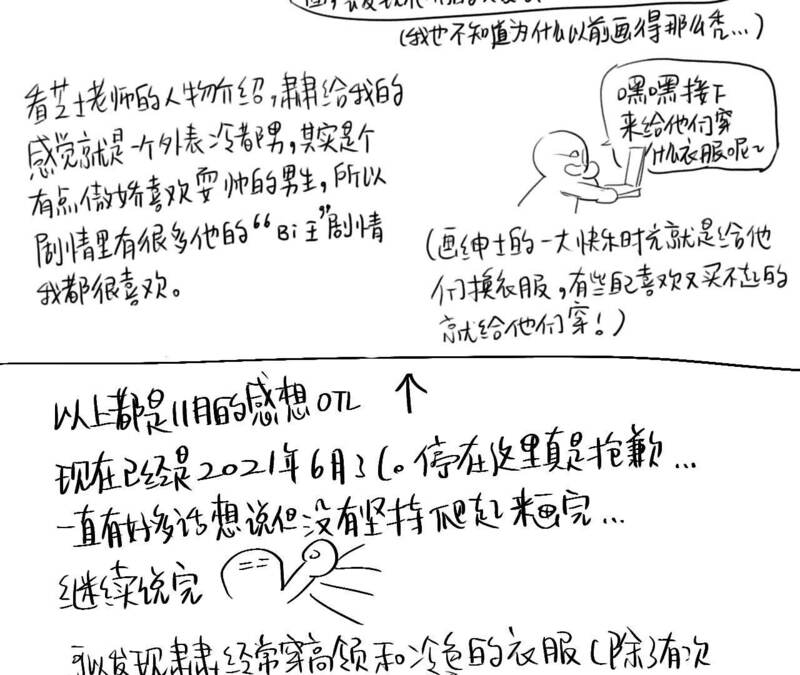 (我也不知道为什么以前画得那么秃...)
看芝士老师的人物介绍,肃给我的
感觉就是一个外表冷都男,其实是个
有点傲娇喜欢耍帅的男生,所以
剧情里有很多他的“Bi王”剧情
我都很喜欢。
嘿嘿接下
来给他们穿
什么衣服呢~
(画绅士的一大快乐时光就是给他
们换衣服,有些自己喜欢又买不起的
就给他们穿!)
以上都是11月的感想OTL ↑
现在已经是2021年6月3(。停在这里真是抱歉...
一直有好多话想说但没有坚持爬起来画完...
继续说完
可以发现肃经常穿高领和冷色的衣服(除了有次